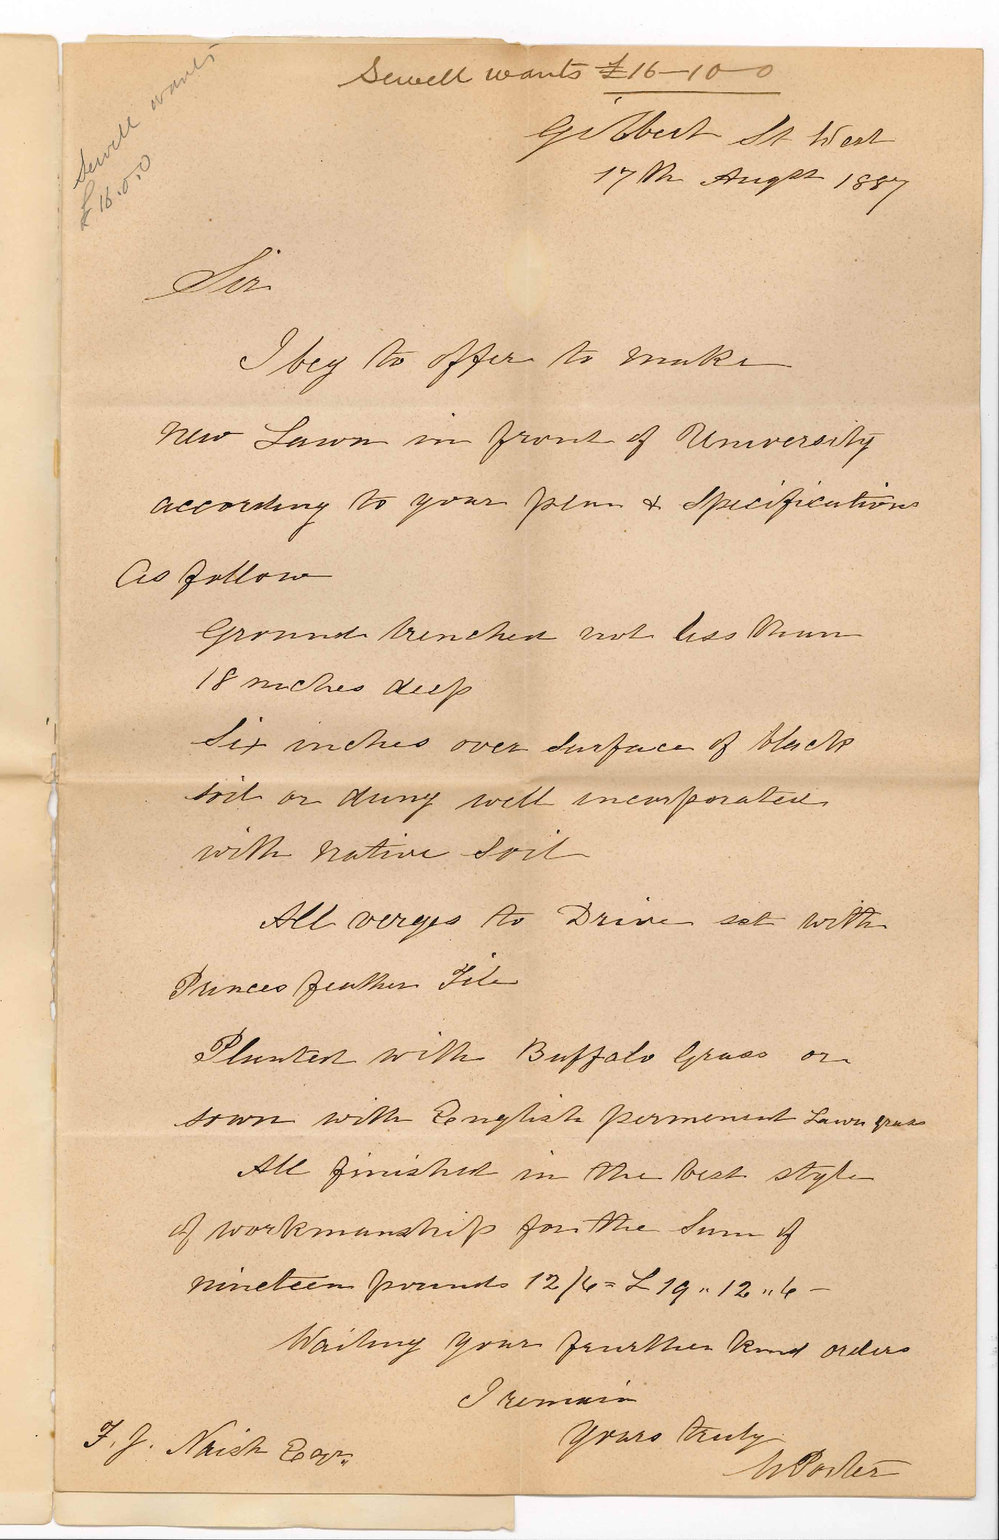 Sewell wants £16-10-0
Sewell wants
£16.0.0
Gilbert St West
17th Augst 1887
Sir
I beg to offer to make
New Lawn in front of University
according to your plan & Specifications
As follow
Ground trenched not less than
18 inches deep
Six inches over surface of black
soil or dung well incorporated
with native soil
All verges to Drive set with
Princes feather Tile
Planted with Buffalo Grass or
sown with English permenent Lawn grass
All finished in the best style
of workmanship for the Sum of
nineteen pounds 12/6 = £19,,12,,6 –
Waiting your further kind orders
I remain
Yours truly
W Porter
F. J. Naish Esqr.